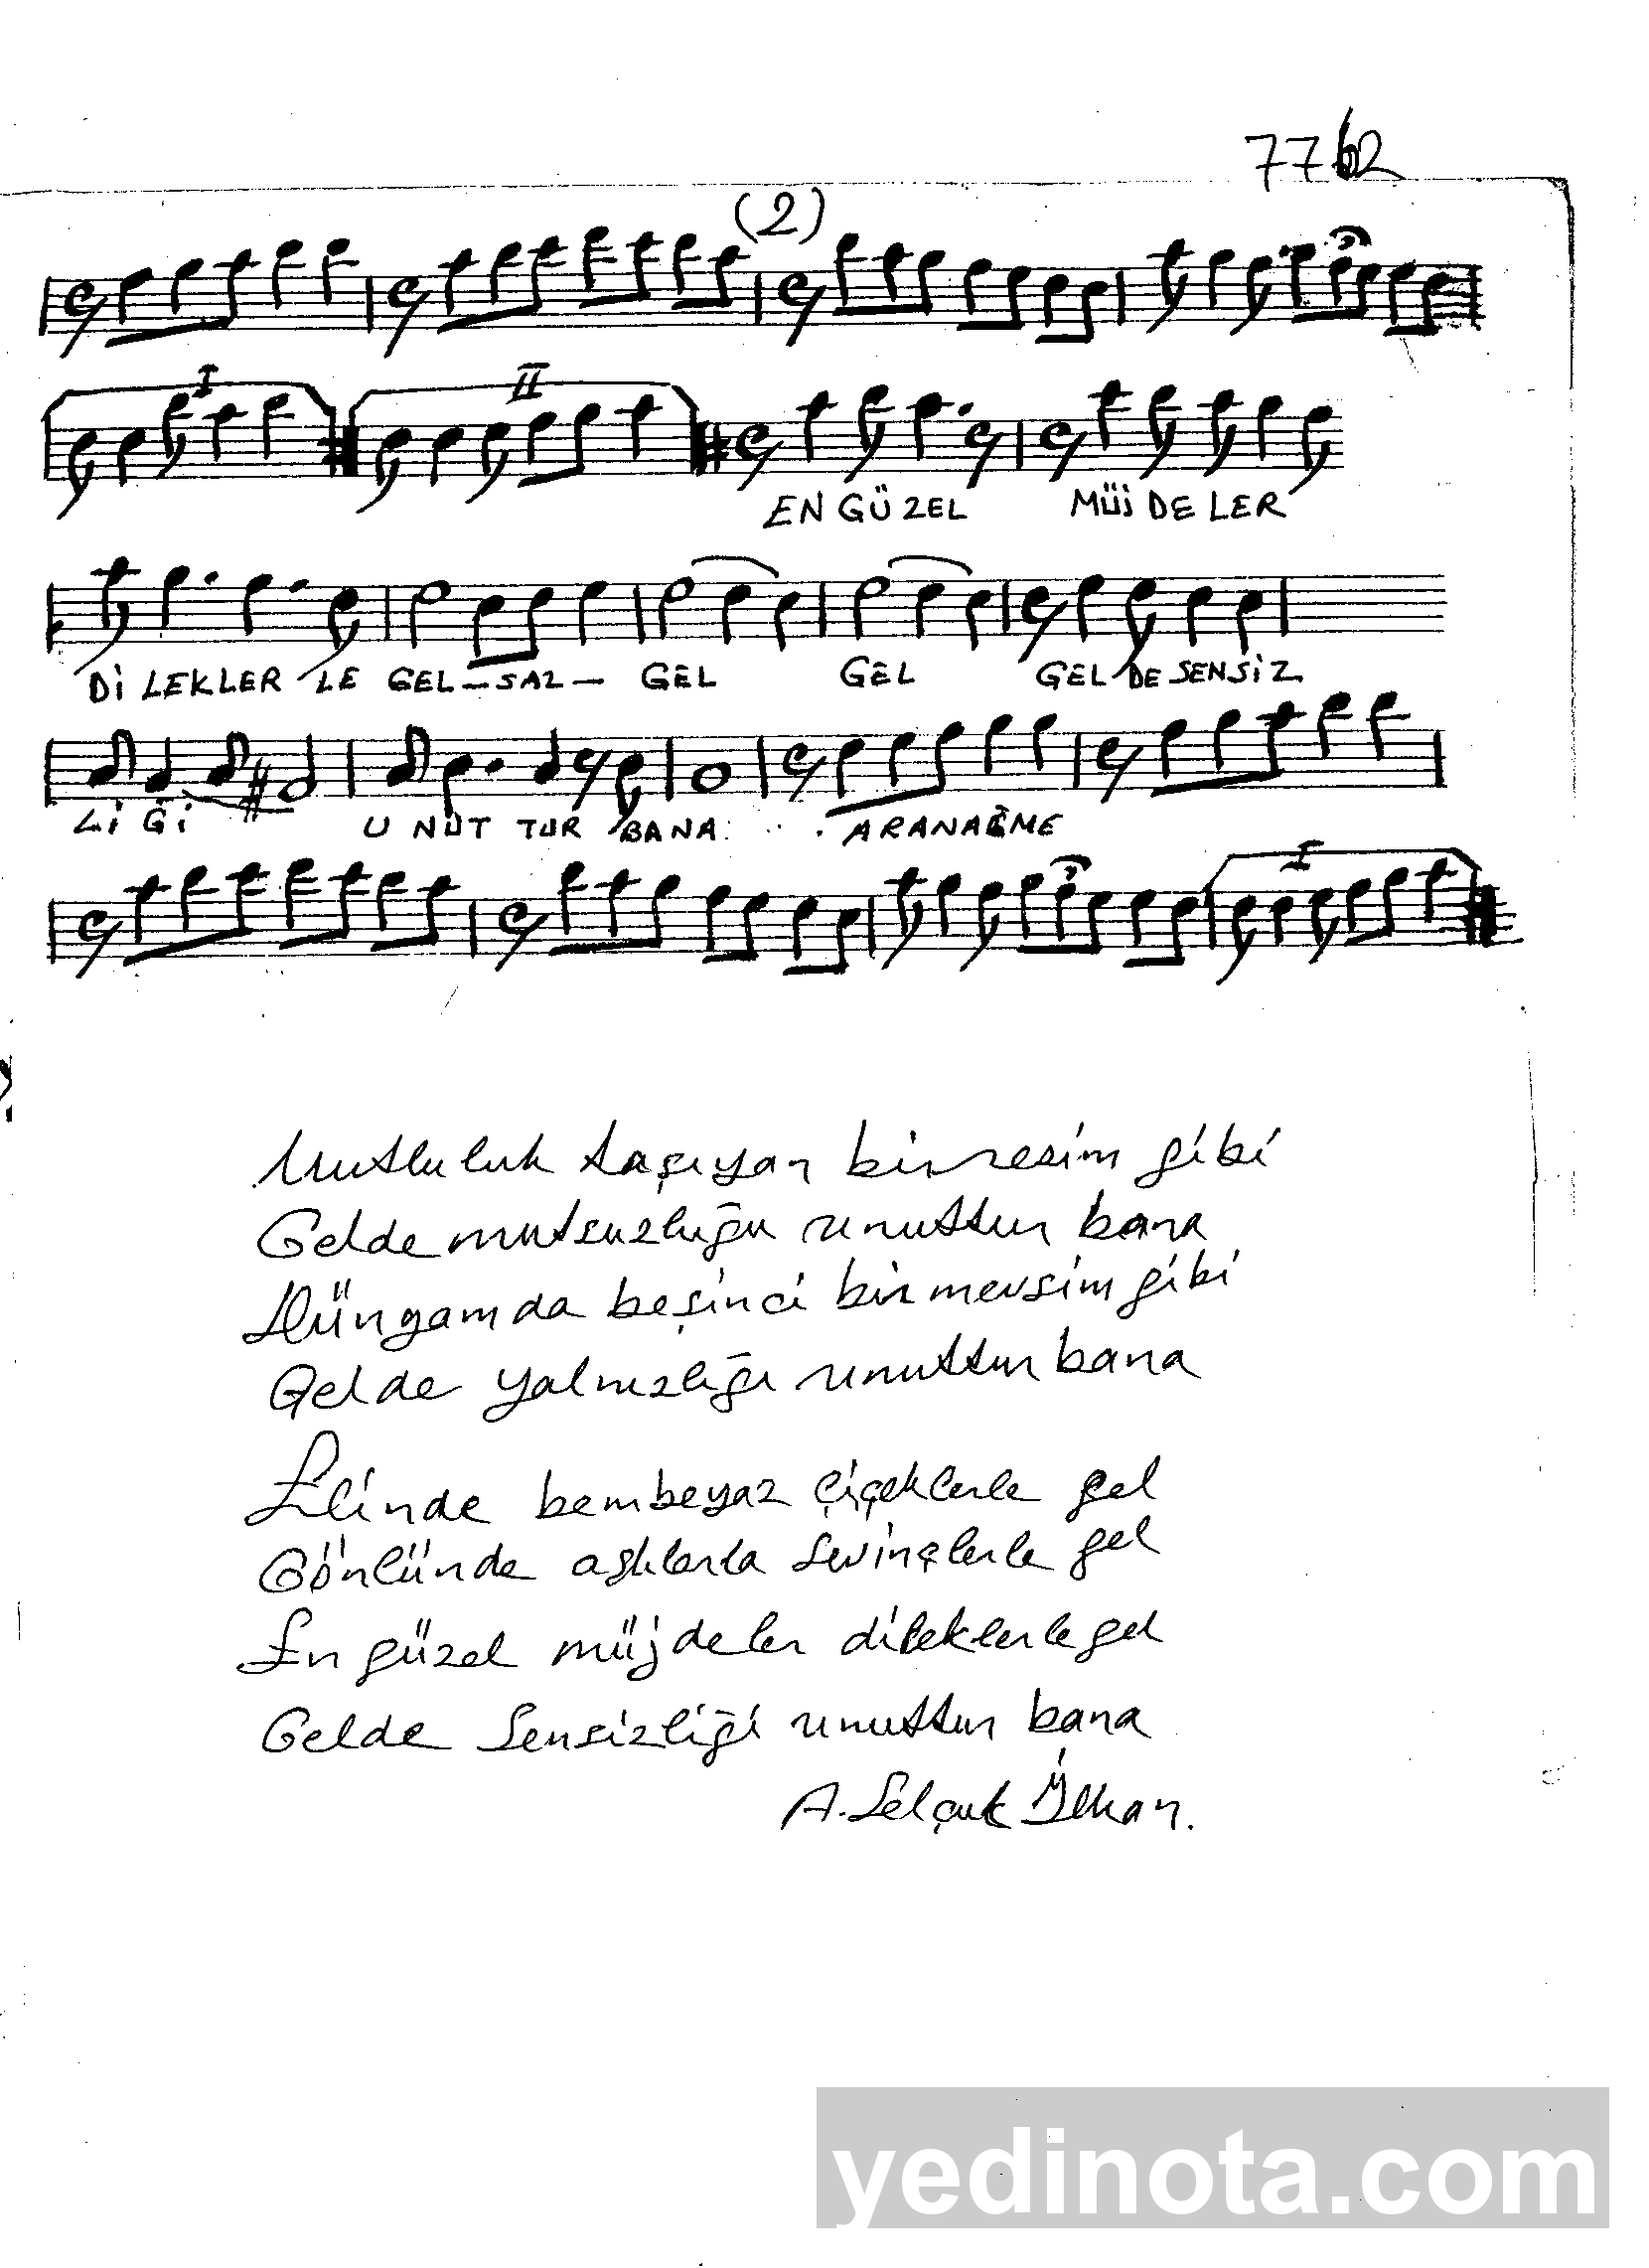 7762
(2)
I II
EN GÜZEL MÜJ DE LER
Dİ LEKLER LE GEL - SAZ - GEL GEL GEL DE SENSİZ
Lİ Ğİ U NUT TUR BANA . . . ARANAĞME
3
I
Mutluluk taşıyan bir resim gibi
Gelde mutsuzluğu unuttur bana
Dünyamda beşinci bir mevsim gibi
Gelde yalnızlığı unuttur bana
Elinde bembeyaz çiçeklerle gel
Gönlünde aşklarla sevinçlerle gel
En güzel müjdeler dileklerle gel
Gelde sensizliği unuttur bana
A. Selçuk İlkan.
yedinota.com